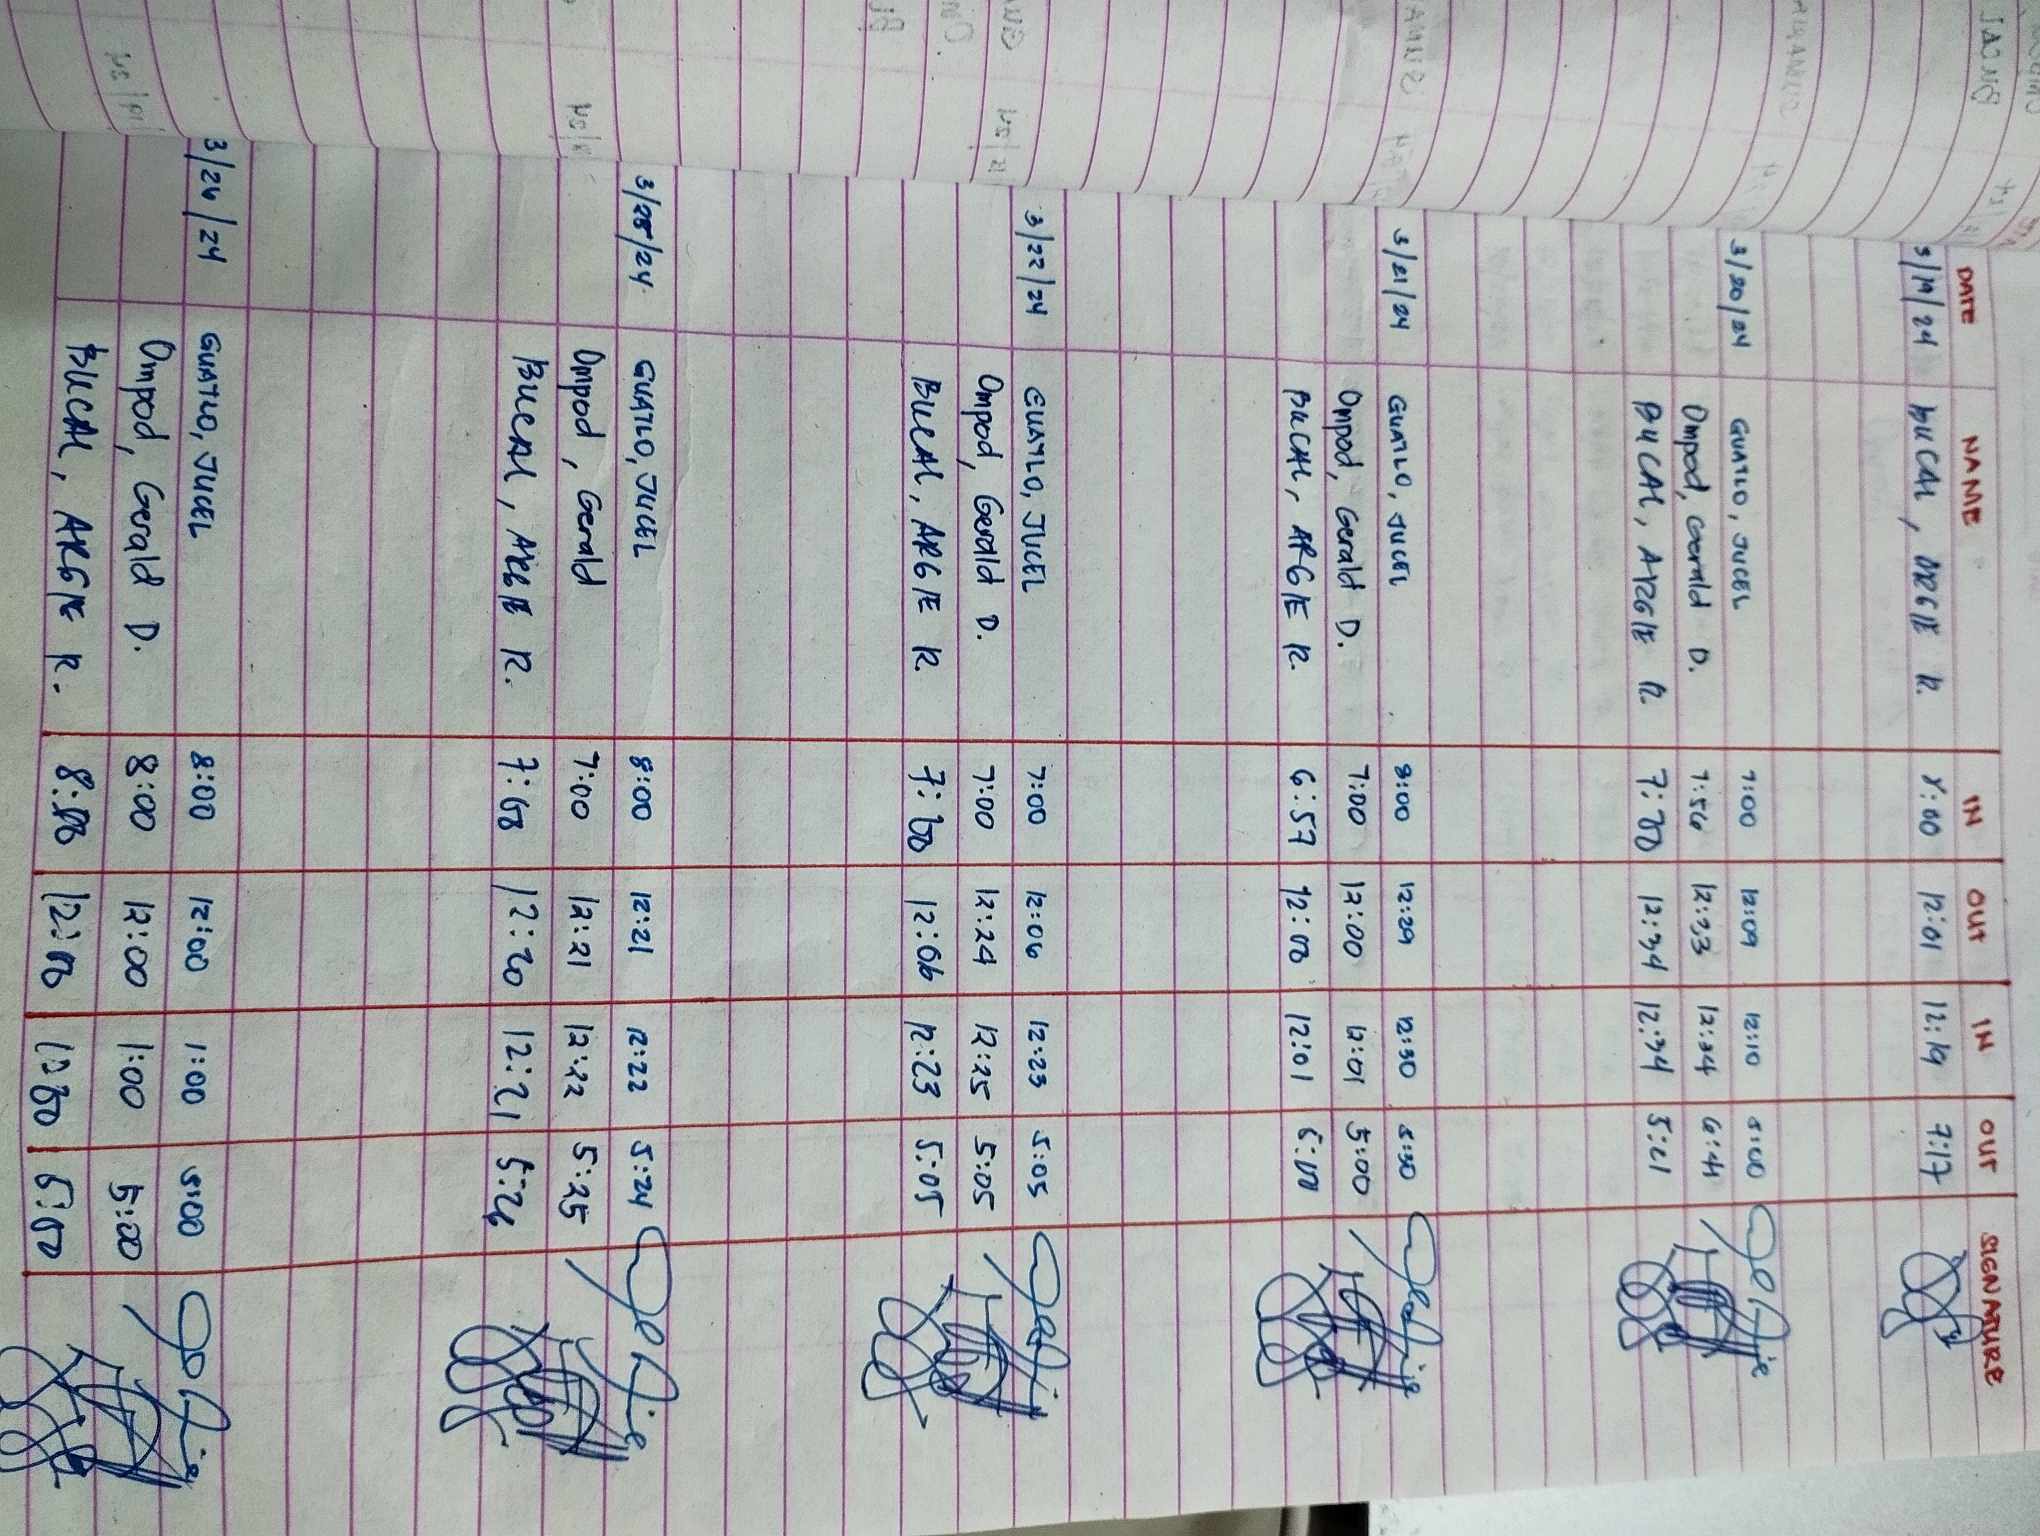 DATE NAME IN OUT IN OUT SIGNATURE
3/19/24 BUCAL, ARGIE R. 8:00 12:01 12:19 7:17
3/20/24 GUATLO, JUCEL 7:00 12:09 12:10 5:00
Ompod, Gerald D. 7:56 12:33 12:34 6:41
BUCAL, ARGIE R. 7:00 12:34 12:34 5:21
3/21/24 GUATLO, JUCEL 8:00 12:29 12:30 5:30
Ompod, Gerald D. 7:00 12:00 12:01 5:00
BUCAL, ARGIE R. 6:57 12:00 12:01 5:00
3/22/24 GUATLO, JUCEL 7:00 12:06 12:23 5:05
Ompod, Gerald D. 7:00 12:24 12:25 5:05
BUCAL, ARGIE R. 7:00 12:06 12:23 5:05
3/25/24 GUATLO, JUCEL 8:00 12:21 12:22 5:24
Ompod, Gerald 7:00 12:21 12:22 5:25
BUCAL, ARGIE R. 12:20 12:21 5:26
3/26/24 GUATLO, JUCEL 8:00 12:00 1:00 5:00
Ompod, Gerald D. 8:00 12:00 1:00 5:00
BUCAL, ARGIE R. 8:00 12:00 1:00 5:00